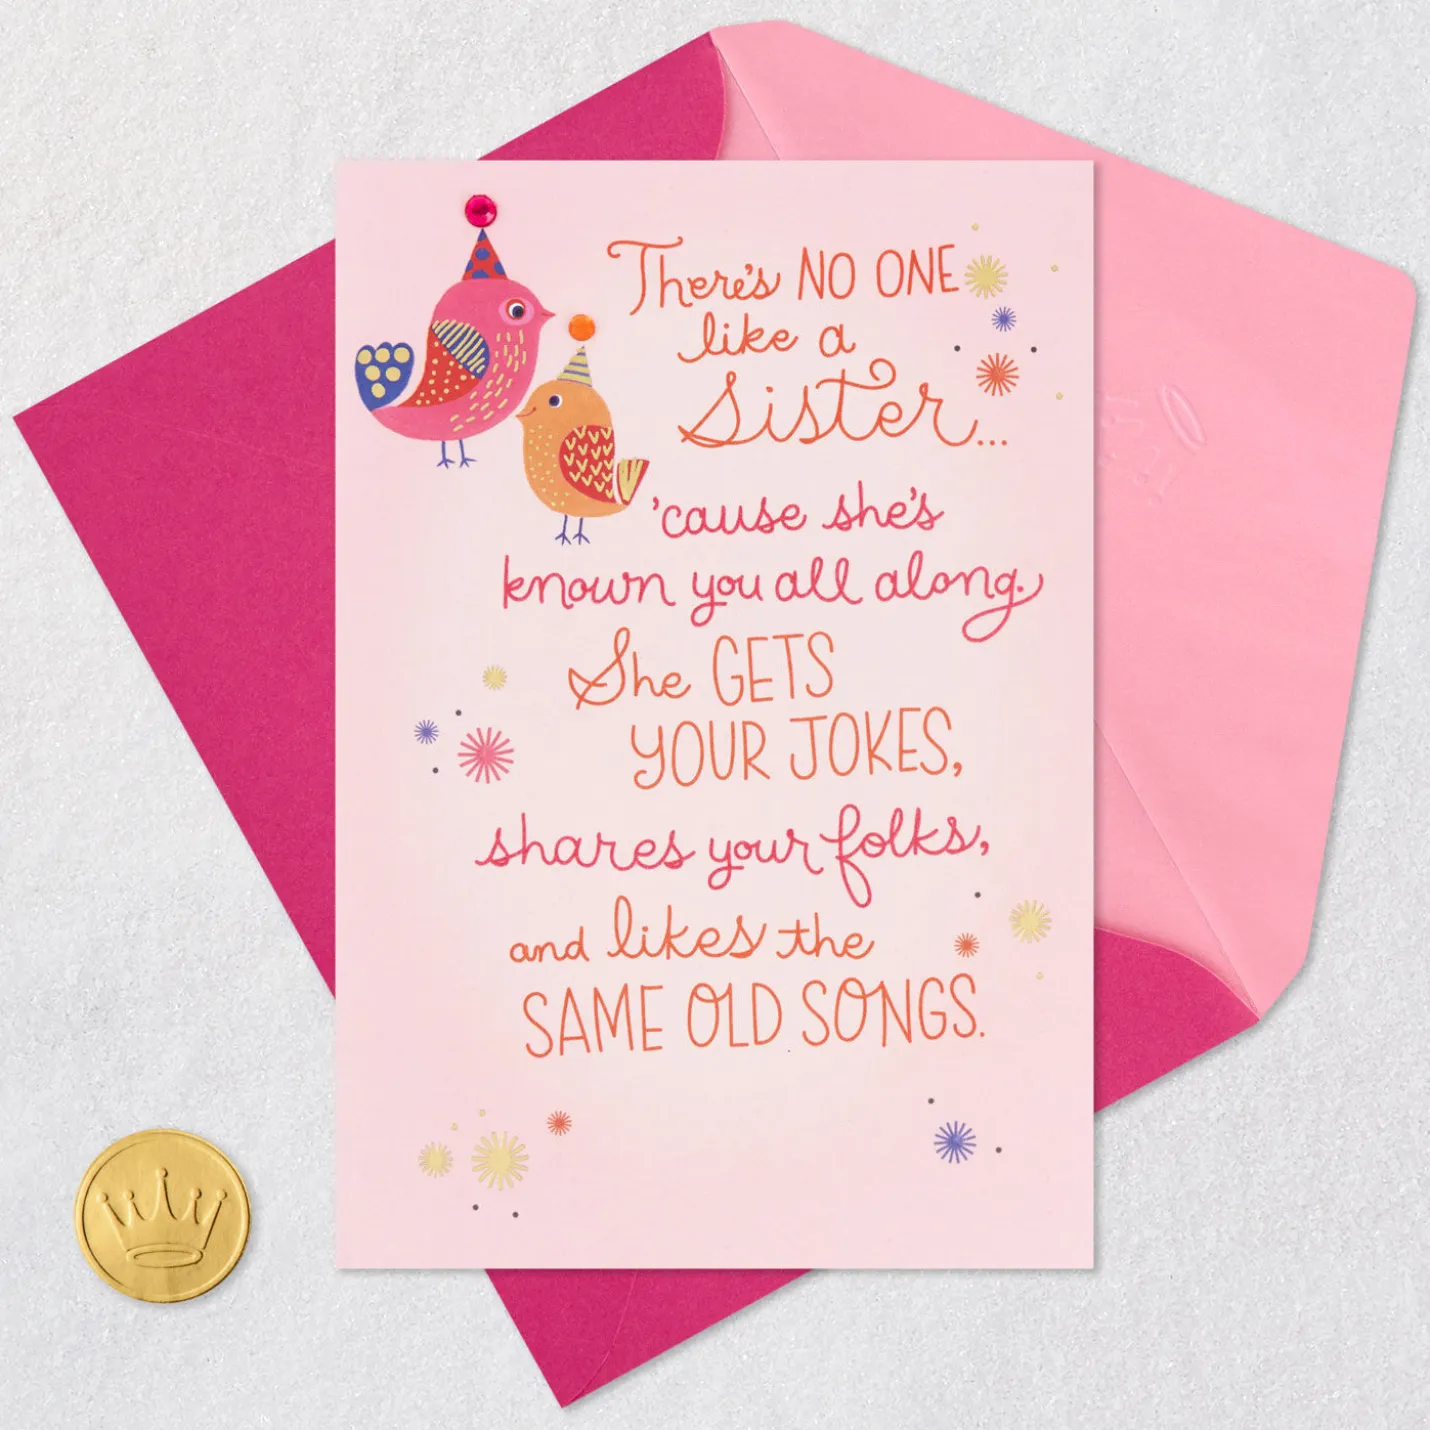 There's NO ONE
like a
Sister...
'cause she's
known you all along.
She GETS
YOUR JOKES,
shares your folks,
and likes the
SAME OLD SONGS.